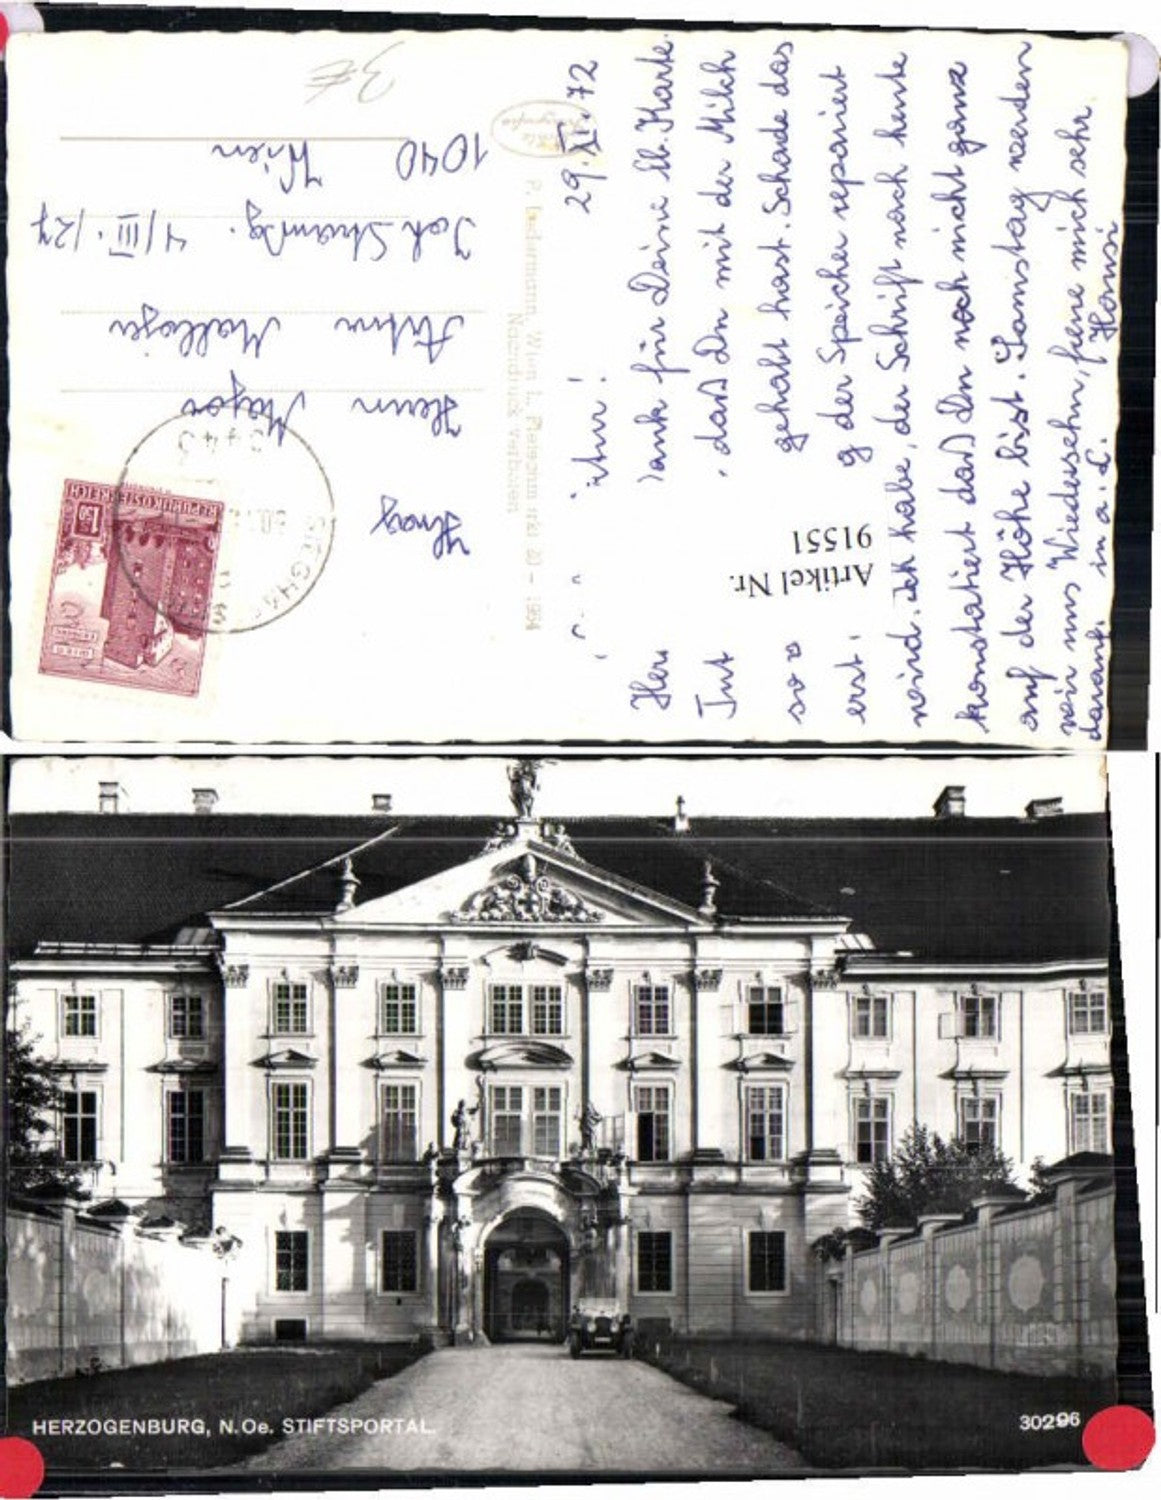 3€
1040 Wien
Joh Straußg. 4/III./27
Artur
Herrn Major
REPUBLIK ÖSTERREICH
1.50
P. Ledermann, Wien I, Fleischmarkt 20 – 1964
Nachdruck verboten
29.XI.72
ank für Deine lb. Karte.
, daß Du mit der Milch
gehabt hast. Schade das
erst, g der Speicher repariert
wird. Ich habe, der Schrift nach heute
konstatiert daß Du noch nicht ganz
auf der Höhe bist. Samstag werden
wir uns Wiedersehn, freue mich sehr
darauf. in a. L. Hansi
Artikel Nr.
91551
HERZOGENBURG, N.Oe. STIFTSPORTAL.
30296